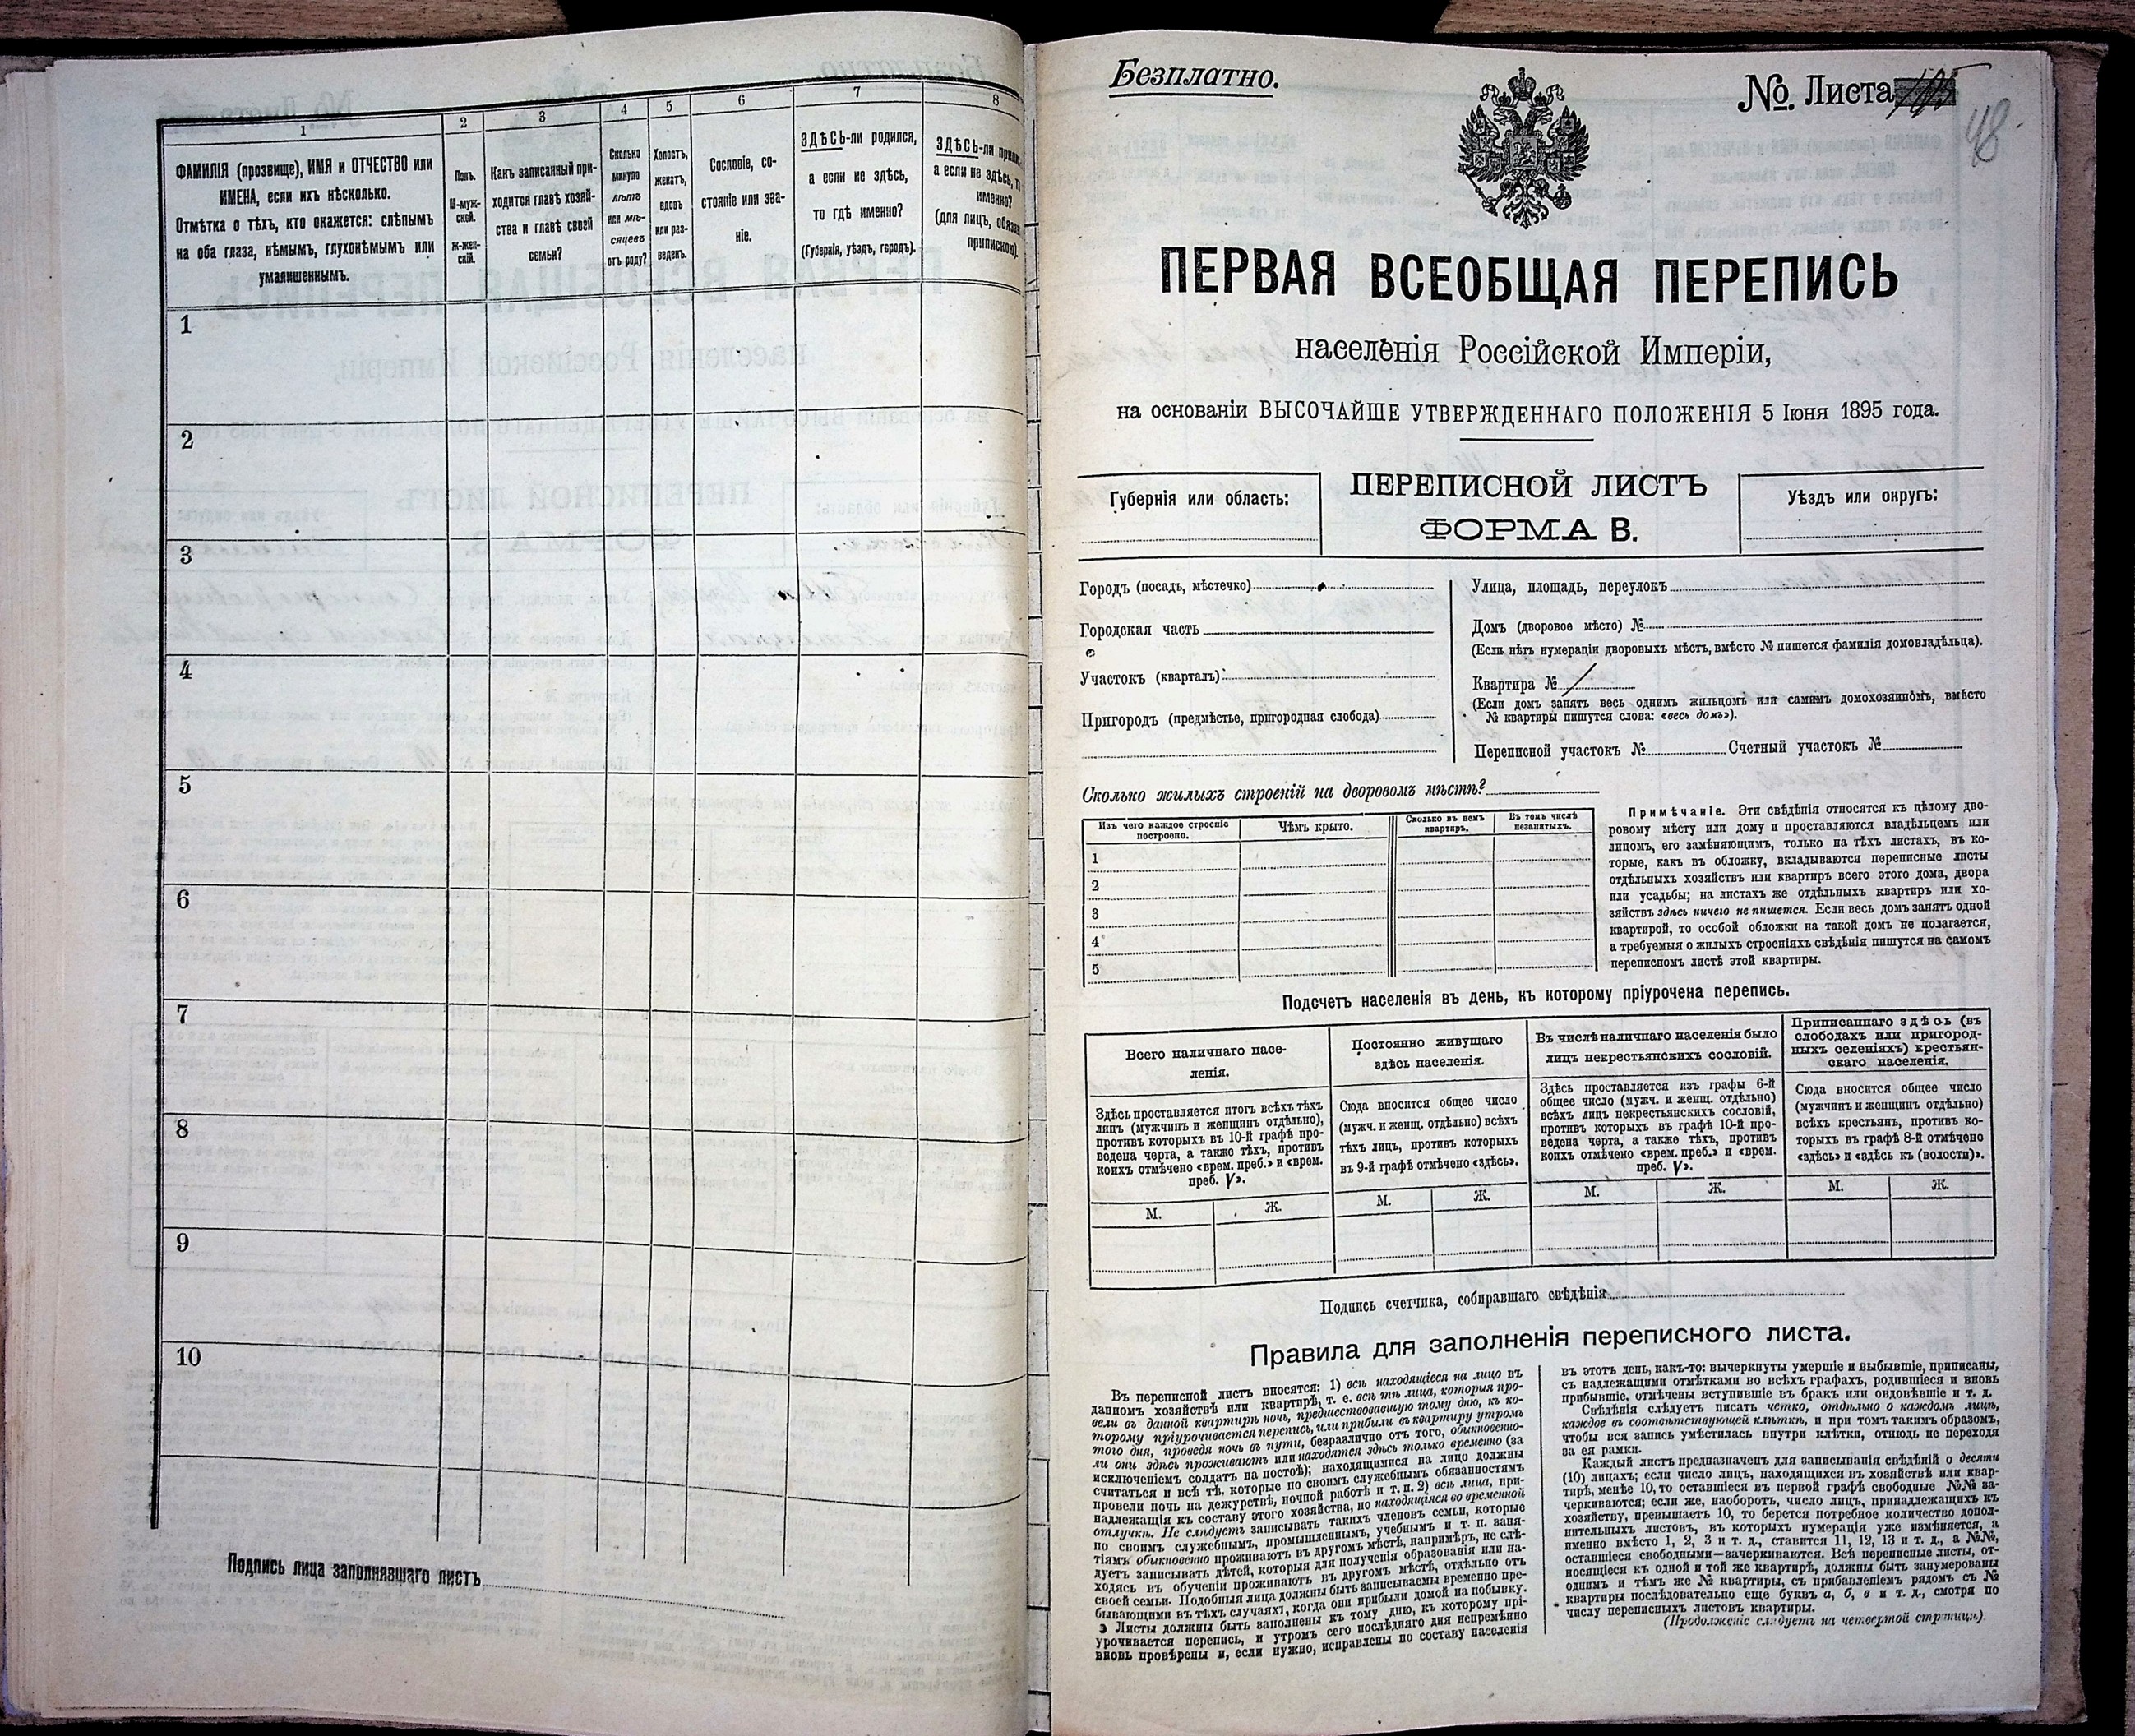 1
2
3
4
5
6
7
8
ФАМИЛІЯ (прозвище), ИМЯ и ОТЧЕСТВО или
ИМЕНА, если ихъ нѣсколько.
Отмѣтка о тѣхъ, кто окажется: слѣпымъ
на оба глаза, нѣмымъ, глухонѣмымъ или
умалишеннымъ.
Полъ.
М-муж-
ской.
Ж-жен-
скій.
Какъ записанный при-
ходится главѣ хозяй-
ства и главѣ своей
семьи?
Сколько
минуло
лѣтъ
или мѣ-
сяцевъ
отъ роду?
Холостъ,
женатъ,
вдовъ
или раз-
веденъ.
Сословіе, со-
стояніе или зва-
ніе.
ЗДѢСЬ-ли родился,
а если не здѣсь,
то гдѣ именно?
(Губернія, уѣздъ, городъ).
ЗДѢСЬ-ли
а если не здѣсь,
именно?
(для лицъ,
припискою).
1
2
3
4
5
6
7
8
9
10
Подпись лица заполнявшаго листъ
Безплатно.
№. Листа
48
ПЕРВАЯ ВСЕОБЩАЯ ПЕРЕПИСЬ
населенія Россійской Имперіи,
на основаніи ВЫСОЧАЙШЕ УТВЕРЖДЕННАГО ПОЛОЖЕНІЯ 5 Іюня 1895 года.
Губернія или область:
ПЕРЕПИСНОЙ ЛИСТЪ
ФОРМА В.
Уѣздъ или округъ:
Городъ (посадъ, мѣстечко)
Городская часть
Участокъ (кварталъ):
Пригородъ (предмѣстье, пригородная слобода)
Улица, площадь, переулокъ
Домъ (дворовое мѣсто) №
(Если нѣтъ нумераціи дворовыхъ мѣстъ, вмѣсто № пишется фамилія домовладѣльца).
Квартира №
(Если домъ занятъ весь однимъ жильцомъ или самимъ домохозяиномъ, вмѣсто
№ квартиры пишутся слова: «весь домъ»).
Переписной участокъ № Счетный участокъ №
Сколько жилыхъ строеній на дворовомъ мѣстѣ?
Изъ чего каждое строеніе
построено.
Чѣмъ крыто.
Сколько въ немъ
квартиръ.
Въ томъ числѣ
незанятыхъ.
1
2
3
4
5
Примѣчаніе. Эти свѣдѣнія относятся къ цѣлому дво-
ровому мѣсту или дому и проставляются владѣльцемъ или
лицомъ, его замѣняющимъ, только на тѣхъ листахъ, въ ко-
торые, какъ въ обложку, вкладываются переписные листы
отдѣльныхъ хозяйствъ или квартиръ всего этого дома, двора
или усадьбы; на листахъ же отдѣльныхъ квартиръ или хо-
зяйствъ здѣсь ничего не пишется. Если весь домъ занятъ одной
квартирой, то особой обложки на такой домъ не полагается,
а требуемыя о жилыхъ строеніяхъ свѣдѣнія пишутся на самомъ
переписномъ листѣ этой квартиры.
Подсчетъ населенія въ день, къ которому пріурочена перепись.
Всего наличнаго насе-
ленія.
Здѣсь проставляется итогъ всѣхъ тѣхъ
лицъ (мужчинъ и женщинъ отдѣльно),
противъ которыхъ въ 10-й графѣ про-
ведена черта, а также тѣхъ, противъ
коихъ отмѣчено «врем. преб.» и «врем.
преб. V».
М. Ж.
Постоянно живущаго
здѣсь населенія.
Сюда вносится общее число
(мужч. и женщ. отдѣльно) всѣхъ
тѣхъ лицъ, противъ которыхъ
въ 9-й графѣ отмѣчено «здѣсь».
М. Ж.
Въ числѣ наличнаго населенія было
лицъ некрестьянскихъ сословій.
Здѣсь проставляется изъ графы 6-й
общее число (мужч. и женщ. отдѣльно)
всѣхъ лицъ некрестьянскихъ сословій,
противъ которыхъ въ графѣ 10-й про-
ведена черта, а также тѣхъ, противъ
коихъ отмѣчено «врем. преб.» и «врем.
преб. V».
М. Ж.
Приписаннаго здѣсь (въ
слободахъ или пригород-
ныхъ селеніяхъ) крестьян-
скаго населенія.
Сюда вносится общее число
(мужчинъ и женщинъ отдѣльно)
всѣхъ крестьянъ, противъ ко-
торыхъ въ графѣ 8-й отмѣчено
«здѣсь» и «здѣсь къ (волости)».
М. Ж.
Подпись счетчика, собиравшаго свѣдѣнія
Правила для заполненія переписного листа.
Въ переписной листъ вносятся: 1) всѣ находящіеся на лицо въ
данномъ хозяйствѣ или квартирѣ, т. е. всѣ тѣ лица, которыя про-
вели въ данной квартирѣ ночь, предшествовавшую тому дню, къ ко-
торому пріурочивается перепись, или прибыли въ квартиру утромъ
того дня, проведя ночь въ пути, безразлично отъ того, обыкновенно-
ли они здѣсь проживаютъ или находятся здѣсь только временно (за
исключеніемъ солдатъ на постоѣ); находящимися на лицо должны
считаться и всѣ тѣ, которые по своимъ служебнымъ обязанностямъ
провели ночь на дежурствѣ, ночной работѣ и т. п. 2) всѣ лица, при-
надлежащія къ составу этого хозяйства, но находящіяся во временной
отлучкѣ. Не слѣдуетъ записывать такихъ членовъ семьи, которые
по своимъ служебнымъ, промышленнымъ, учебнымъ и т. п. заня-
тіямъ обыкновенно проживаютъ въ другомъ мѣстѣ, напримѣръ, не слѣ-
дуетъ записывать дѣтей, которыя для полученія образованія или на-
ходясь въ обученіи проживаютъ въ другомъ мѣстѣ, отдѣльно отъ
своей семьи. Подобныя лица должны быть записываемы временно пре-
бывающими въ тѣхъ случаяхъ, когда они прибыли домой на побывку.
Листы должны быть заполнены къ тому дню, къ которому прі-
урочивается перепись, и утромъ сего послѣдняго дня непремѣнно
вновь провѣрены и, если нужно, исправлены по составу населенія
въ этотъ день, какъ-то: вычеркнуты умершіе и выбывшіе, приписаны,
съ надлежащими отмѣтками во всѣхъ графахъ, родившіеся и вновь
прибывшіе, отмѣчены вступившіе въ бракъ или овдовѣвшіе и т. д.
Свѣдѣнія слѣдуетъ писать четко, отдѣльно о каждомъ лицѣ,
каждое въ соотвѣтствующей клѣткѣ, и при томъ такимъ образомъ,
чтобы вся запись умѣстилась внутри клѣтки, отнюдь не переходя
за ея рамки.
Каждый листъ предназначенъ для записыванія свѣдѣній о десяти
(10) лицахъ; если число лицъ, находящихся въ хозяйствѣ или квар-
тирѣ, менѣе 10, то оставшіеся въ первой графѣ свободные №№ за-
черкиваются; если же, наоборотъ, число лицъ, принадлежащихъ къ
хозяйству, превышаетъ 10, то берется потребное количество допол-
нительныхъ листовъ, въ которыхъ нумерація уже измѣняется, а
именно вмѣсто 1, 2, 3 и т. д., ставится 11, 12, 13 и т. д., а №№,
оставшіеся свободными—зачеркиваются. Всѣ переписные листы, от-
носящіеся къ одной и той же квартирѣ, должны быть занумерованы
однимъ и тѣмъ же № квартиры, съ прибавленіемъ рядомъ съ №
квартиры послѣдовательно еще буквъ а, б, в и т. д., смотря по
числу переписныхъ листовъ квартиры.
(Продолженіе слѣдуетъ на четвертой страницѣ).